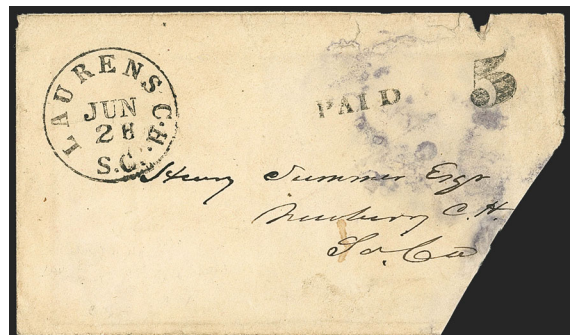 LAURENS C.H.
JUN
28
S.C.
PAID
5
Henry Summer Esqr
Newberry C.H.
So. Ca